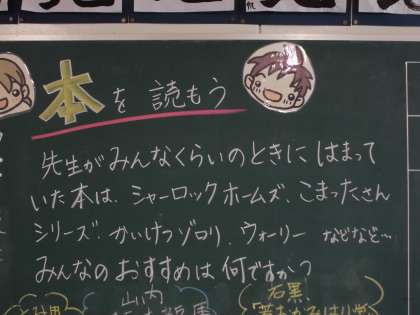 本を読もう
先生がみんなくらいのときにはまって
いた本は、シャーロックホームズ、こまったさん
シリーズ、かいけつゾロリ、ウォーリー などなど…
みんなのおすすめは何ですか?
山内
石黒